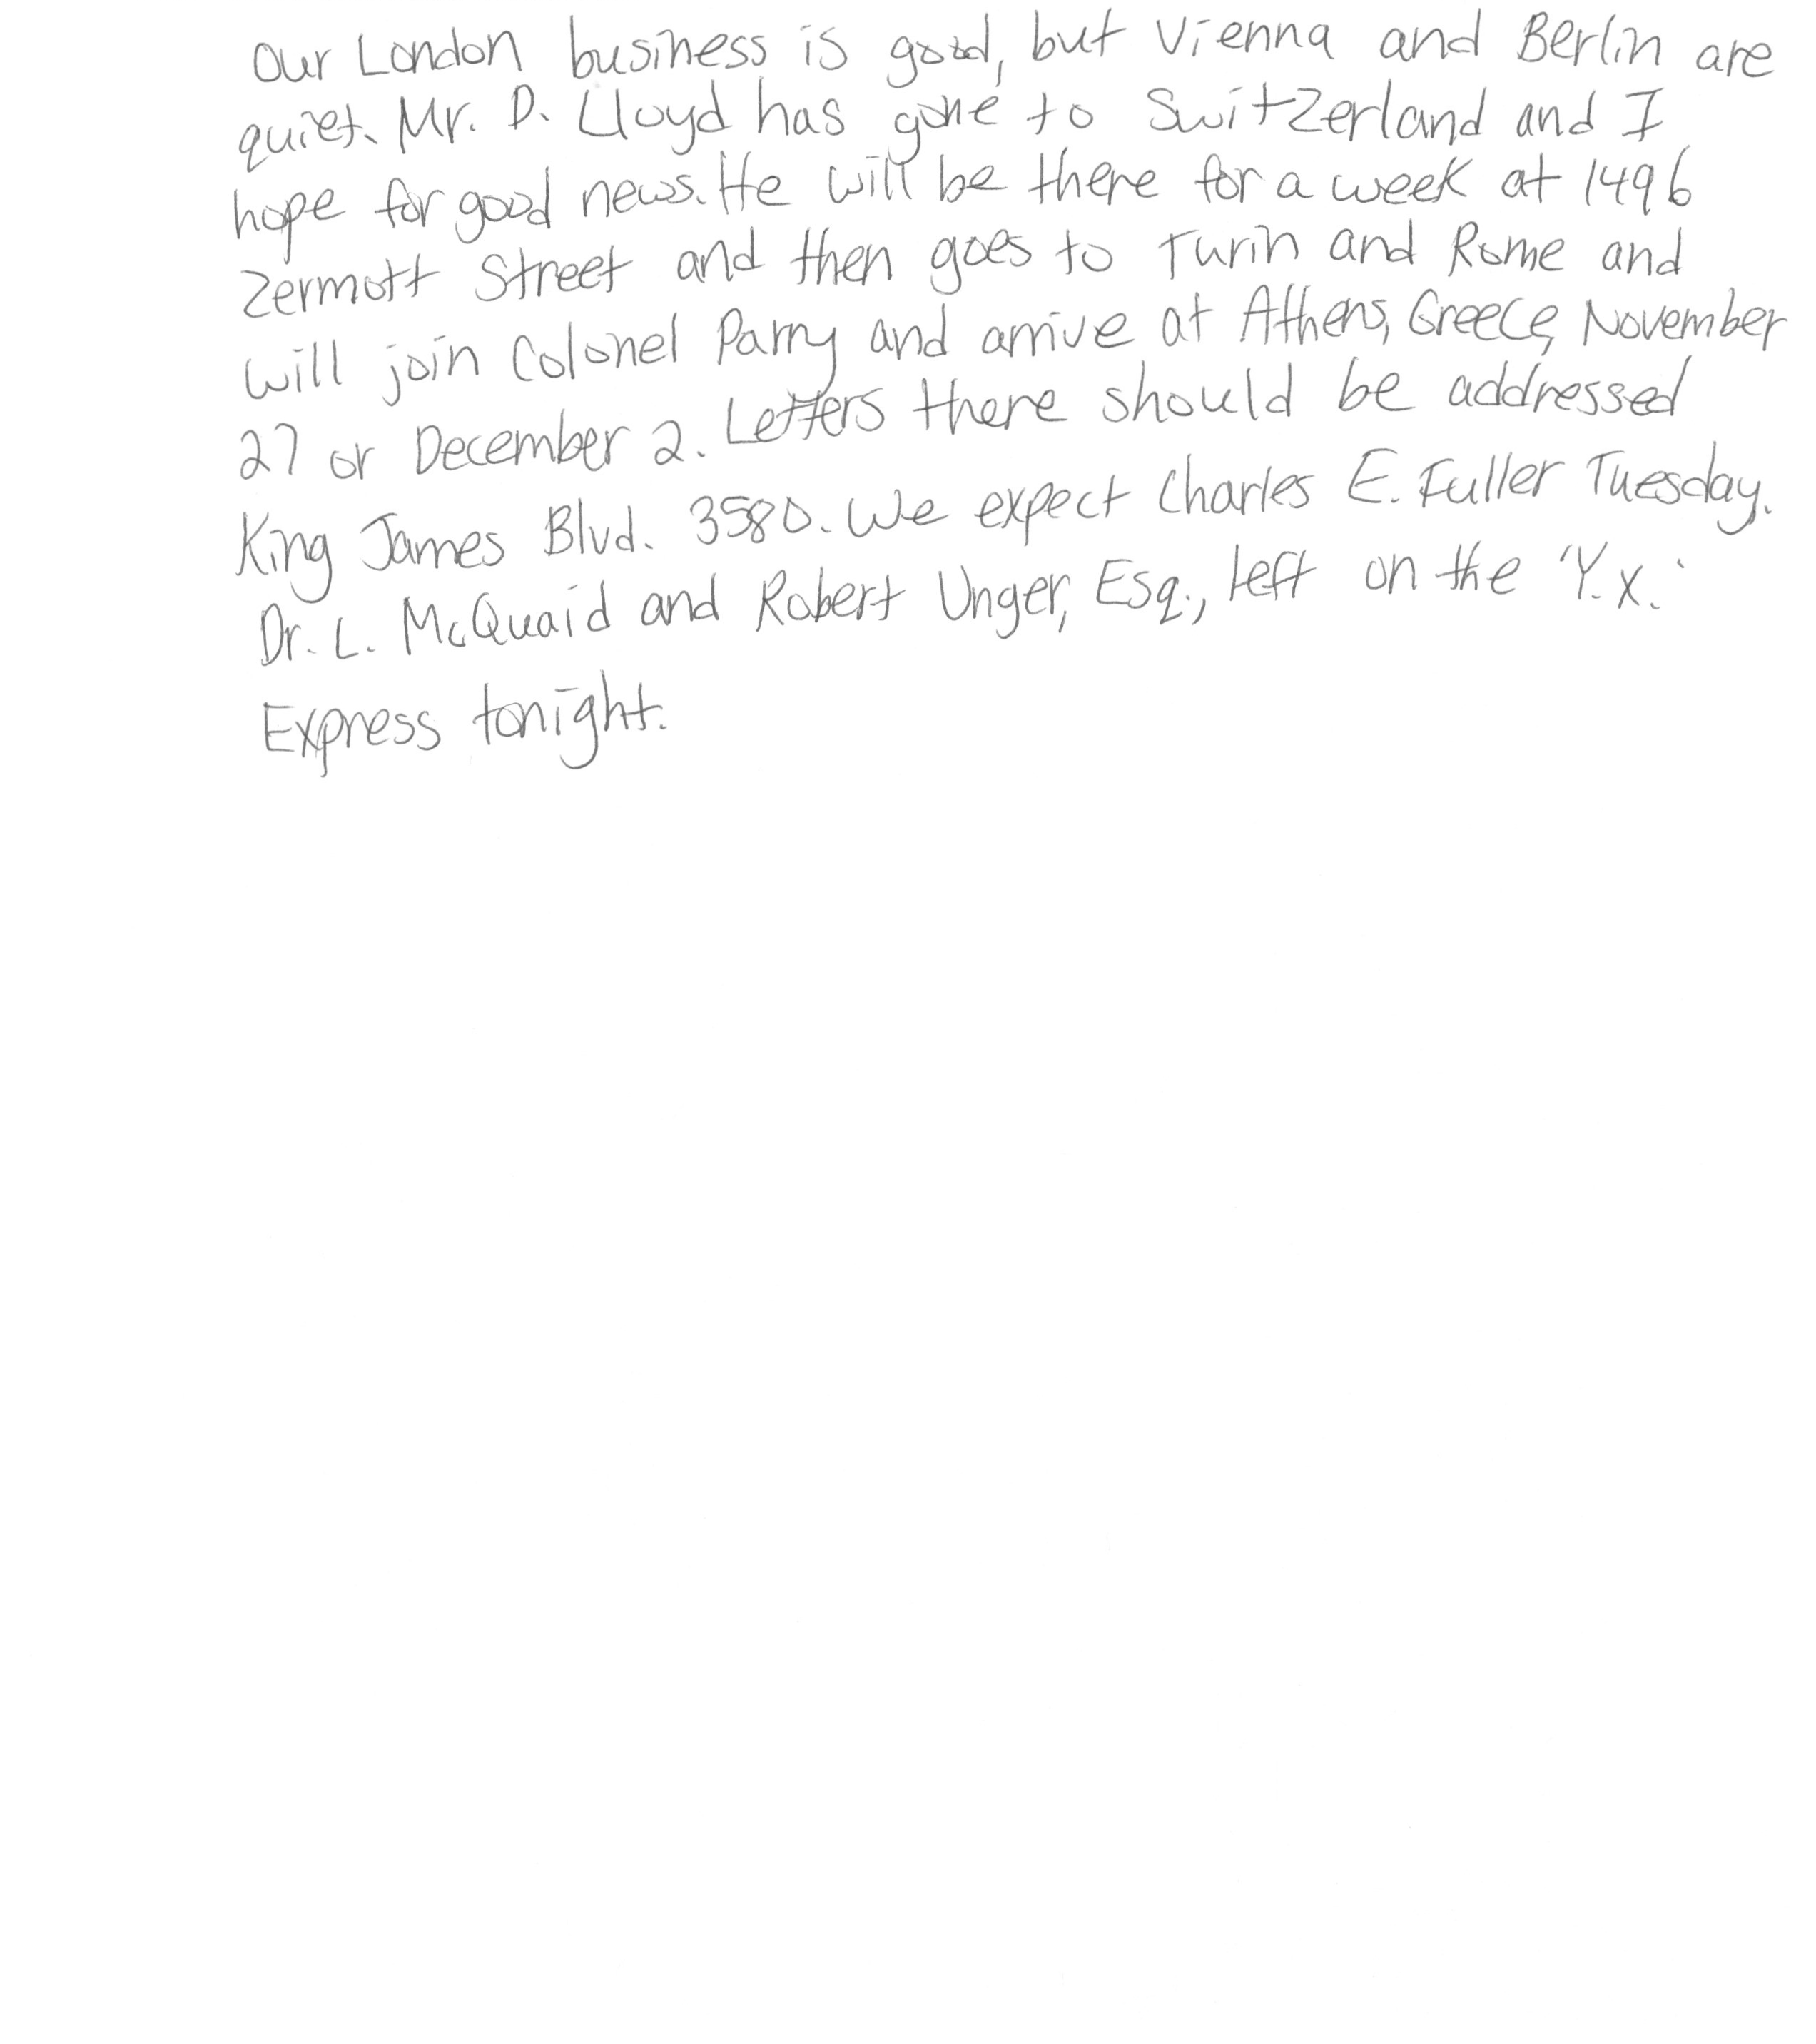 Our London business is good, but Vienna and Berlin are
quiet. Mr. D. Lloyd has gone to Switzerland and I
hope for good news. He will be there for a week at 1496
Zermott Street and then goes to Turin and Rome and
will join Colonel Parry and arrive at Athens, Greece, November
27 or December 2. Letters there should be addressed
King James Blvd. 3580. We expect Charles E. Fuller Tuesday.
Dr. L. McQuaid and Robert Unger, Esq., left on the 'Y.X.'
Express tonight.